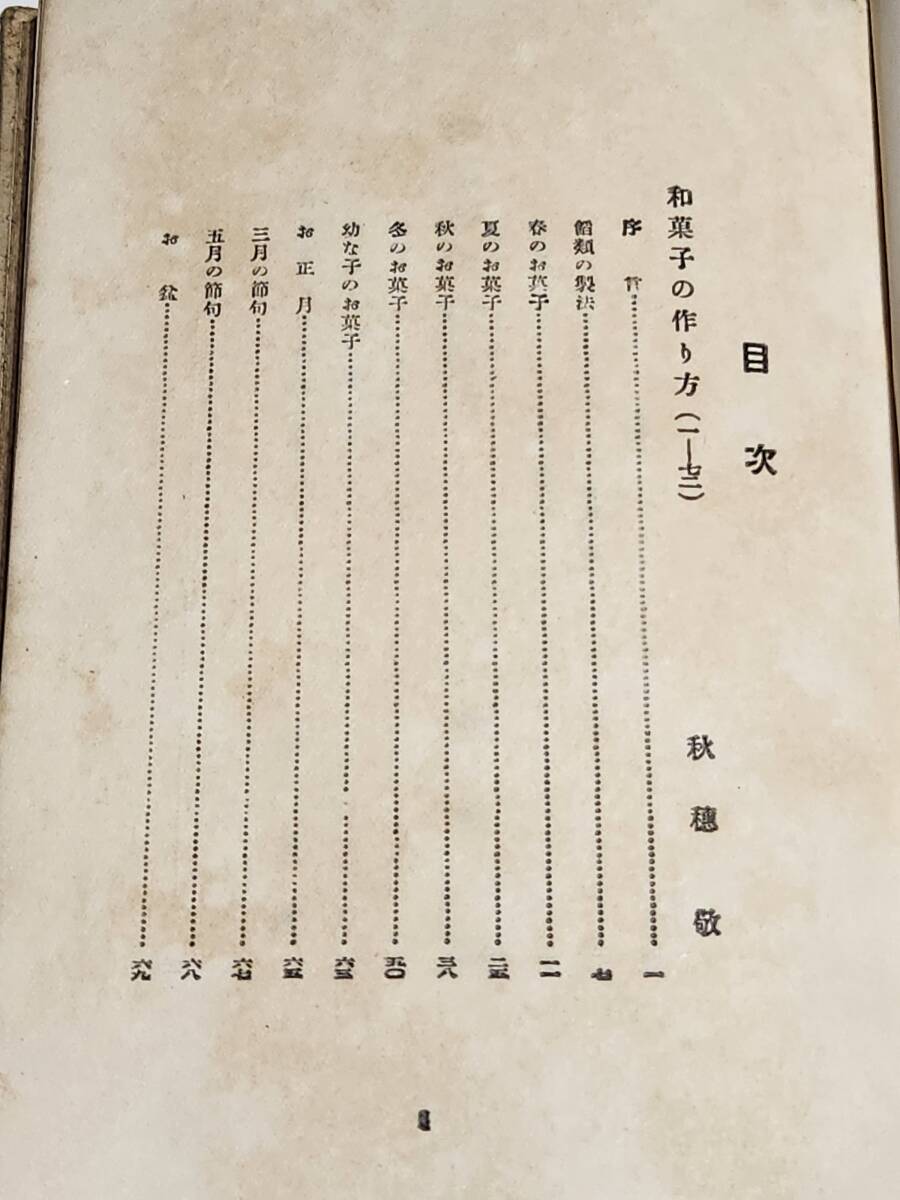 目次
和菓子の作り方(一—七二) 秋穗敬
序言……一
餡類の製法……七
春のお菓子……一一
夏のお菓子……二五
秋のお菓子……三八
冬のお菓子……五〇
幼な子のお菓子……六三
お正月……六五
三月の節句……六七
五月の節句……六八
お盆……六九